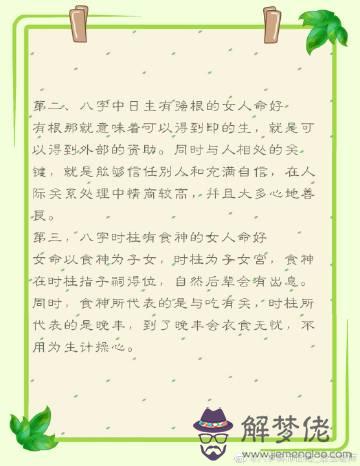 第二、八字中日主有强根的女人命好
有根那就意味着可以得到印的生，就是可
以得到外部的资助。同时与人相处的关
键，就是能够信任别人和充满自信，在人
际关系处理中情商较高，并且大多心地善
良。
第三，八字时柱有食神的女人命好
女命以食神为子女，时柱为子女宫，食神
在时柱指子嗣得位，自然后辈会有出息。
同时，食神所代表的是与吃有关，时柱所
代表的是晚年，到了晚年会衣食无忧，不
用为生计操心。
解梦佬
www.jiemenglao.com